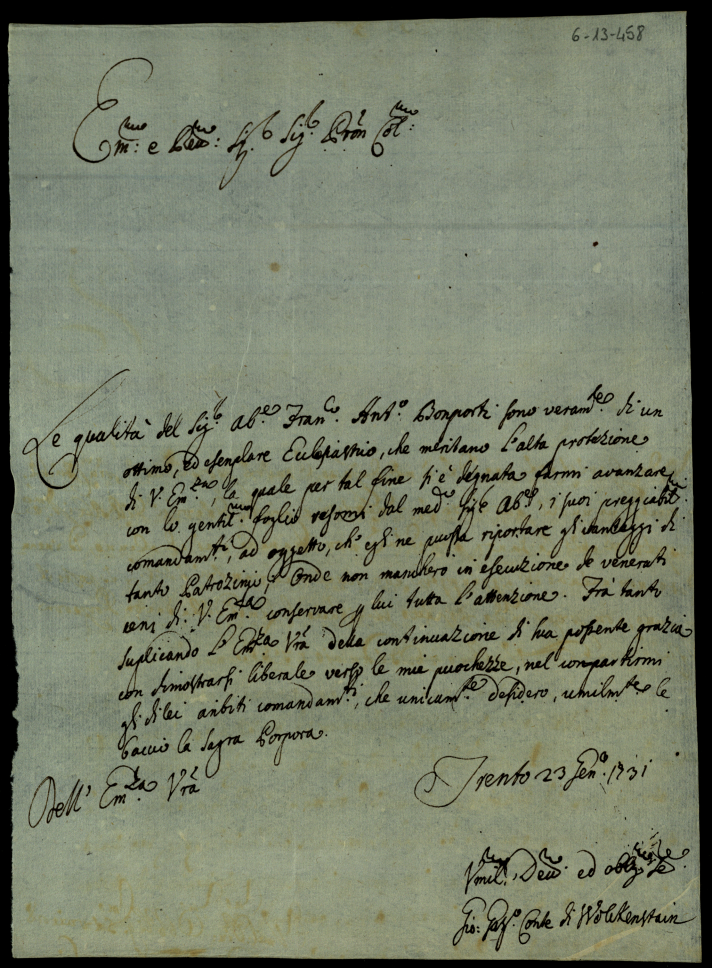 6-13-458
Em:mo e Rev:mo Sig.r Sig.r Pron Col:mo
Le qualità del Sig.r Ab.e Fran.co Ant.o Bonporti sono veram.te di un
ottimo, ed esemplare Eclesiastico, che meritano l'alta protezione
di V. Em.za, la quale per tal fine si è degnata farmi avanzare
con lo gentil.mo foglio resomi dal med.o Sig.r Ab.e, i suoi preggiabil.mi
comandam.ti, ad oggetto, ch'egli ne possa riportare gli vantaggi di
tanto Patrozinij; Onde non manchero in esecuzione de venerati
ceni di V. Em.za conservare p lui tutta l'attenzione. Frà tanto
suplicando l'Em.za Vrã della continuazione di sua possente grazia
con dimostrarsi liberale verso le mie puochezze, nel compartirmi
gli di lei anbiti comandam.ti, che unicam.te desidero, umilm.te le
baccio la sagra Porpora.
Dell' Em.za Vrã
Trento 23 Gen.o 1731
Vmil.mo Dev.mo ed oblig.mo Se.re
Gio: Gas.o Conte di Wolckenstain